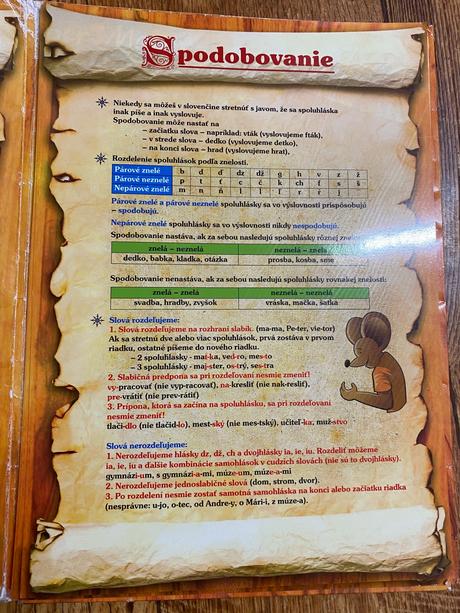 Spodobovanie
Niekedy sa môžeš v slovenčine stretnúť s javom, že sa spoluhláska
inak píše a inak vyslovuje.
Spodobovanie môže nastať na
– začiatku slova – napríklad: vták (vyslovujeme fták),
– v strede slova – dedko (vyslovujeme detko),
– na konci slova – hrad (vyslovujeme hrat).
Rozdelenie spoluhlások podľa znelosti.
Párové znelé b d ď dz dž g h v z ž
Párové neznelé p t ť c č k ch f s š
Nepárové znelé m n ň l ĺ ľ r ŕ j
Párové znelé a párové neznelé spoluhlásky sa vo výslovnosti prispôsobujú
– spodobujú.
Nepárové znelé spoluhlásky sa vo výslovnosti nikdy nespodobujú.
Spodobovanie nastáva, ak za sebou nasledujú spoluhlásky rôznej
znelá – neznelá neznelá – znelá
dedko, babka, kladka, otázka prosba, kosba, sme
Spodobovanie nenastáva, ak za sebou nasledujú spoluhlásky rovnakej znelosti:
znelá – znelá neznelá – neznelá
svadba, hradby, zvyšok vráska, mačka, šatka
Slová rozdeľujeme:
1. Slová rozdeľujeme na rozhraní slabík. (ma-ma, Pe-ter, vie-tor)
Ak sa stretnú dve alebo viac spoluhlások, prvá zostáva v prvom
riadku, ostatné píšeme do nového riadku.
– 2 spoluhlásky - mat-ka, ved-ro, mes-to
– 3 spoluhlásky - maj-ster, os-trý, ses-tra
2. Slabičná predpona sa pri rozdeľovaní nesmie zmeniť!
vy-pracovať (nie vyp-racovať), na-kresliť (nie nak-resliť),
pre-vrátiť (nie prev-rátiť)
3. Prípona, ktorá sa začína na spoluhlásku, sa pri rozdeľovaní
nesmie zmeniť!
tlači-dlo (nie tlačid-lo), mest-ský (nie mes-tský), učiteľ-ka, muž-stvo
Slová nerozdeľujeme:
1. Nerozdeľujeme hlásky dz, dž, ch a dvojhlásky ia, ie, iu. Rozdeliť môžeme
ia, ie, iu a ďalšie kombinácie samohlások v cudzích slovách (nie sú to dvojhlásky).
gymnázi-um, s gymnázi-a-mi, múze-um, múze-a-mi
2. Nerozdeľujeme jednoslabičné slová (dom, strom, dvor).
3. Po rozdelení nesmie zostať samotná samohláska na konci alebo začiatku riadka
(nesprávne: u-jo, o-tec, od Andre-y, o Mári-i, z múze-a).